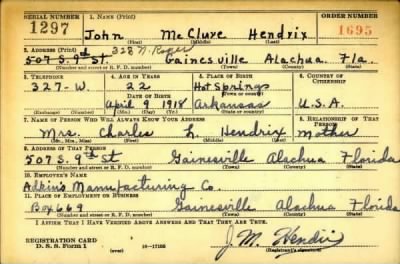 SERIAL NUMBER 1. NAME (Print) ORDER NUMBER
1297 John McClure Hendrix 1695
(First) (Middle) (Last)
2. ADDRESS (Print) 328 N.
507 S. 9th St. Gainesville Alachua Fla.
(Number and street or R. F. D. number) (Town) (County) (State)
3. TELEPHONE 4. AGE IN YEARS 5. PLACE OF BIRTH 6. COUNTRY OF CITIZENSHIP
327-W. 22 Hot Springs
DATE OF BIRTH (Town or county)
April 9 1918 Arkansas U.S.A.
(Exchange) (Number) (Mo.) (Day) (Yr.) (State or country)
7. NAME OF PERSON WHO WILL ALWAYS KNOW YOUR ADDRESS 8. RELATIONSHIP OF THAT PERSON
Mrs. Charles L. Hendrix Mother
(Mr., Mrs., Miss) (First) (Middle) (Last)
9. ADDRESS OF THAT PERSON
507 S. 9th St Gainesville Alachua Florida
(Number and street or R. F. D. number) (Town) (County) (State)
10. EMPLOYER'S NAME
Adkins Manufacturing Co.
11. PLACE OF EMPLOYMENT OR BUSINESS
Box 669 Gainesville Alachua Florida
(Number and street or R. F. D. number) (Town) (County) (State)
I AFFIRM THAT I HAVE VERIFIED ABOVE ANSWERS AND THAT THEY ARE TRUE.
REGISTRATION CARD J. M. Hendrix
D. S. S. Form 1 (over) 16-17105 (Registrant's signature)